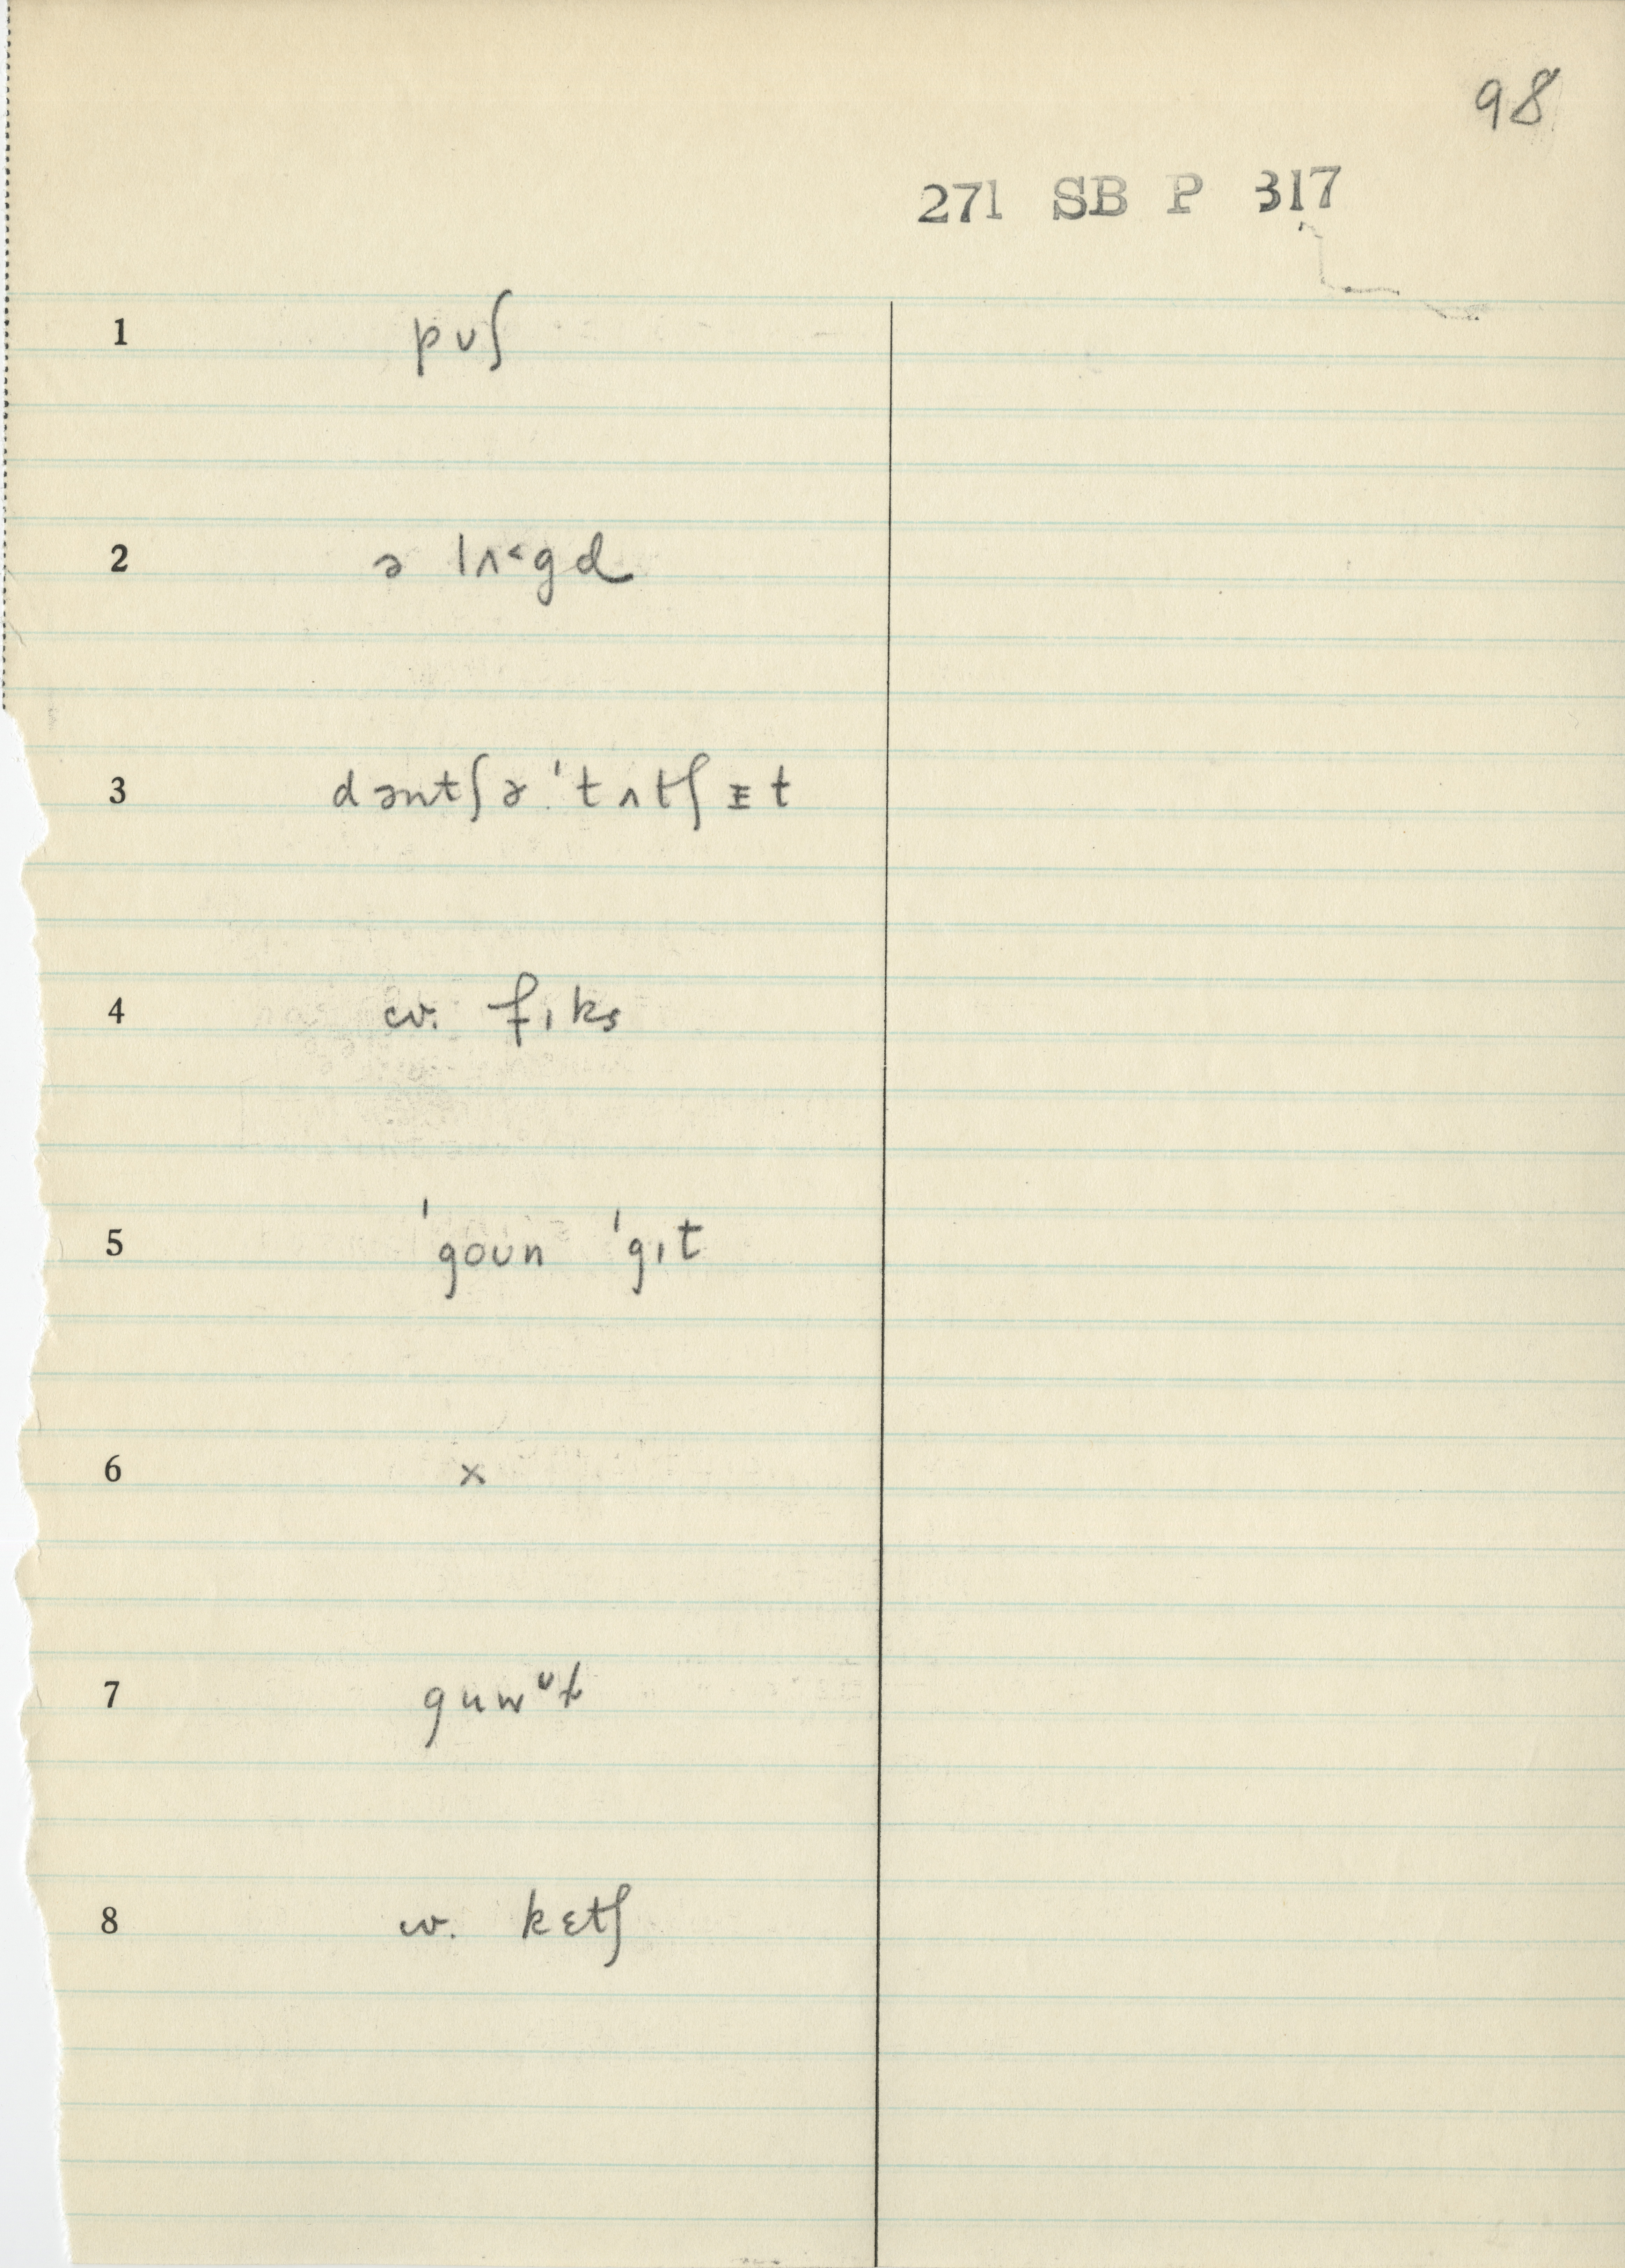 98
271 SB P 317
1 pʊʃ
2 ə lʌ˂gd
3 dəntʃə 'tʌtʃ ɪt
4 w. fɪks
5 'goʊn 'gɪt
6 ×
7 
8 w. kɛtʃ